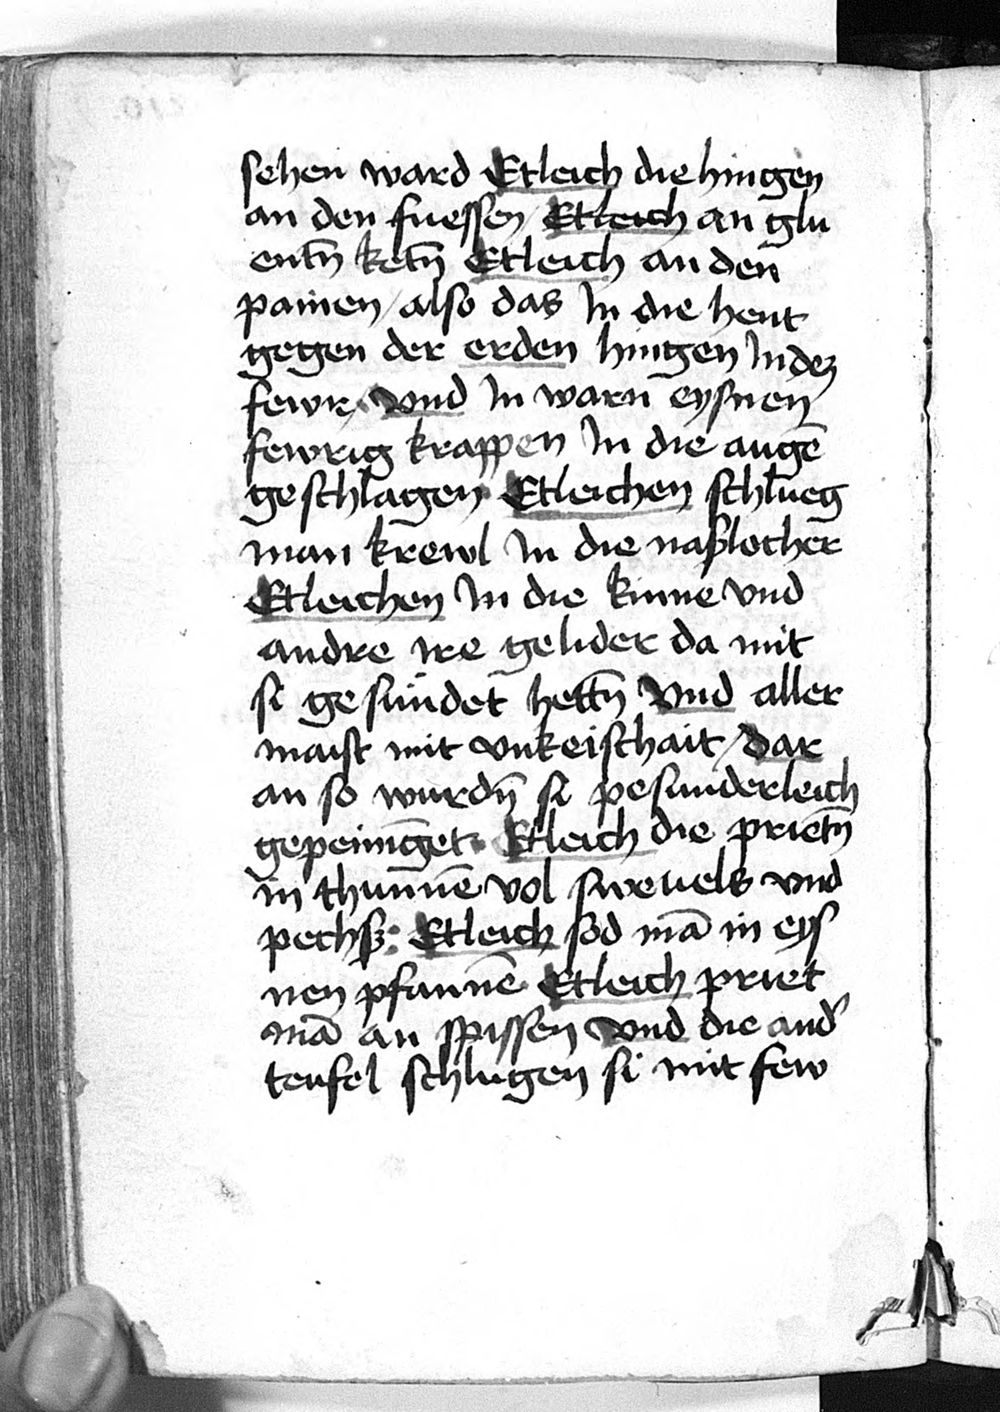 sehen ward Etleich die hingen
an den fuessen / Etleich an glu
entn̄ ketn̄ Etleich an den
painen / also das In die heut
gegen der erden hingen In dez
fewr / vnd In warn eysnen
fewrig krappen In die augē
geschlagen Etleichen schlueg
man krewl In die naßlocher
Etleichen In die kinne vnd
andre ire gelider da mit
si gesündet hettn̄ Vnd aller
maist mit vnkeischait / dar
an so wurdn̄ si pesunderleich
gepeiniget Etleich die prietn̄
in thunnē vol swevels vnd
pechß : Etleich sod mā in eys
nen pfannē Etleich priet
mā an spissen vnd die and̕
teufel schlugen si mit few